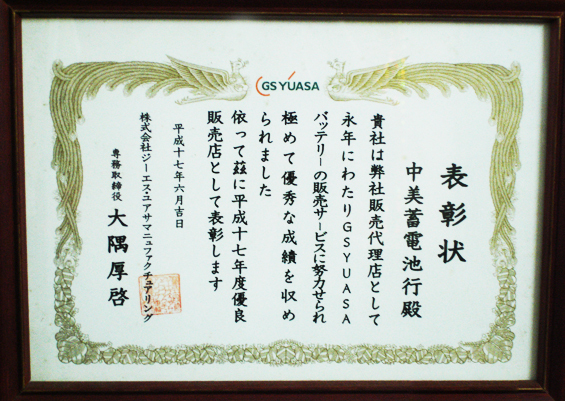 GSYUASA
表彰状
中美蓄電池行殿
貴社は弊社販売代理店として
永年にわたりGSYUASA
バッテリーの販売サービスに努力せられ
極めて優秀な成績を収め
られました
依って茲に平成十七年度優良
販売店として表彰します
平成十七年六月吉日
株式会社ジーエス・ユアサマニュファクチュアリング
専務取締役 大隅厚啓